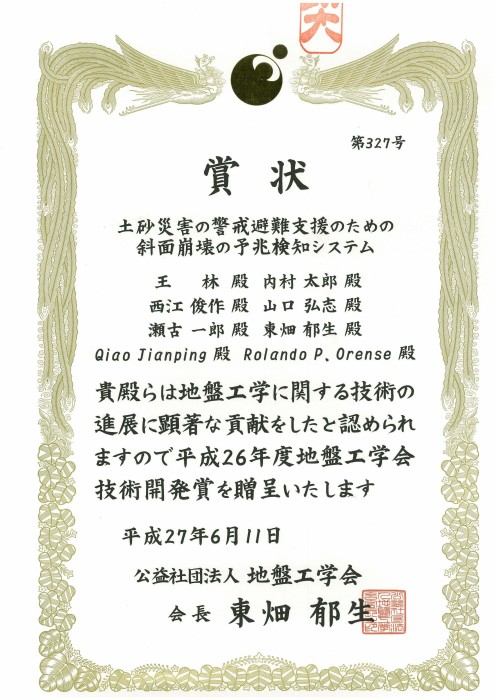 第327号
賞状
土砂災害の警戒避難支援のための
斜面崩壊の予兆検知システム
王 林 殿 内村 太郎 殿
西江 俊作 殿 山口 弘志 殿
瀬古 一郎 殿 東畑 郁生 殿
Qiao Jianping 殿 Rolando P、Orense 殿
貴殿らは地盤工学に関する技術の
進展に顕著な貢献をしたと認められ
ますので平成26年度地盤工学会
技術開発賞を贈呈いたします
平成27年6月11日
公益社団法人 地盤工学会
会長 東畑 郁生